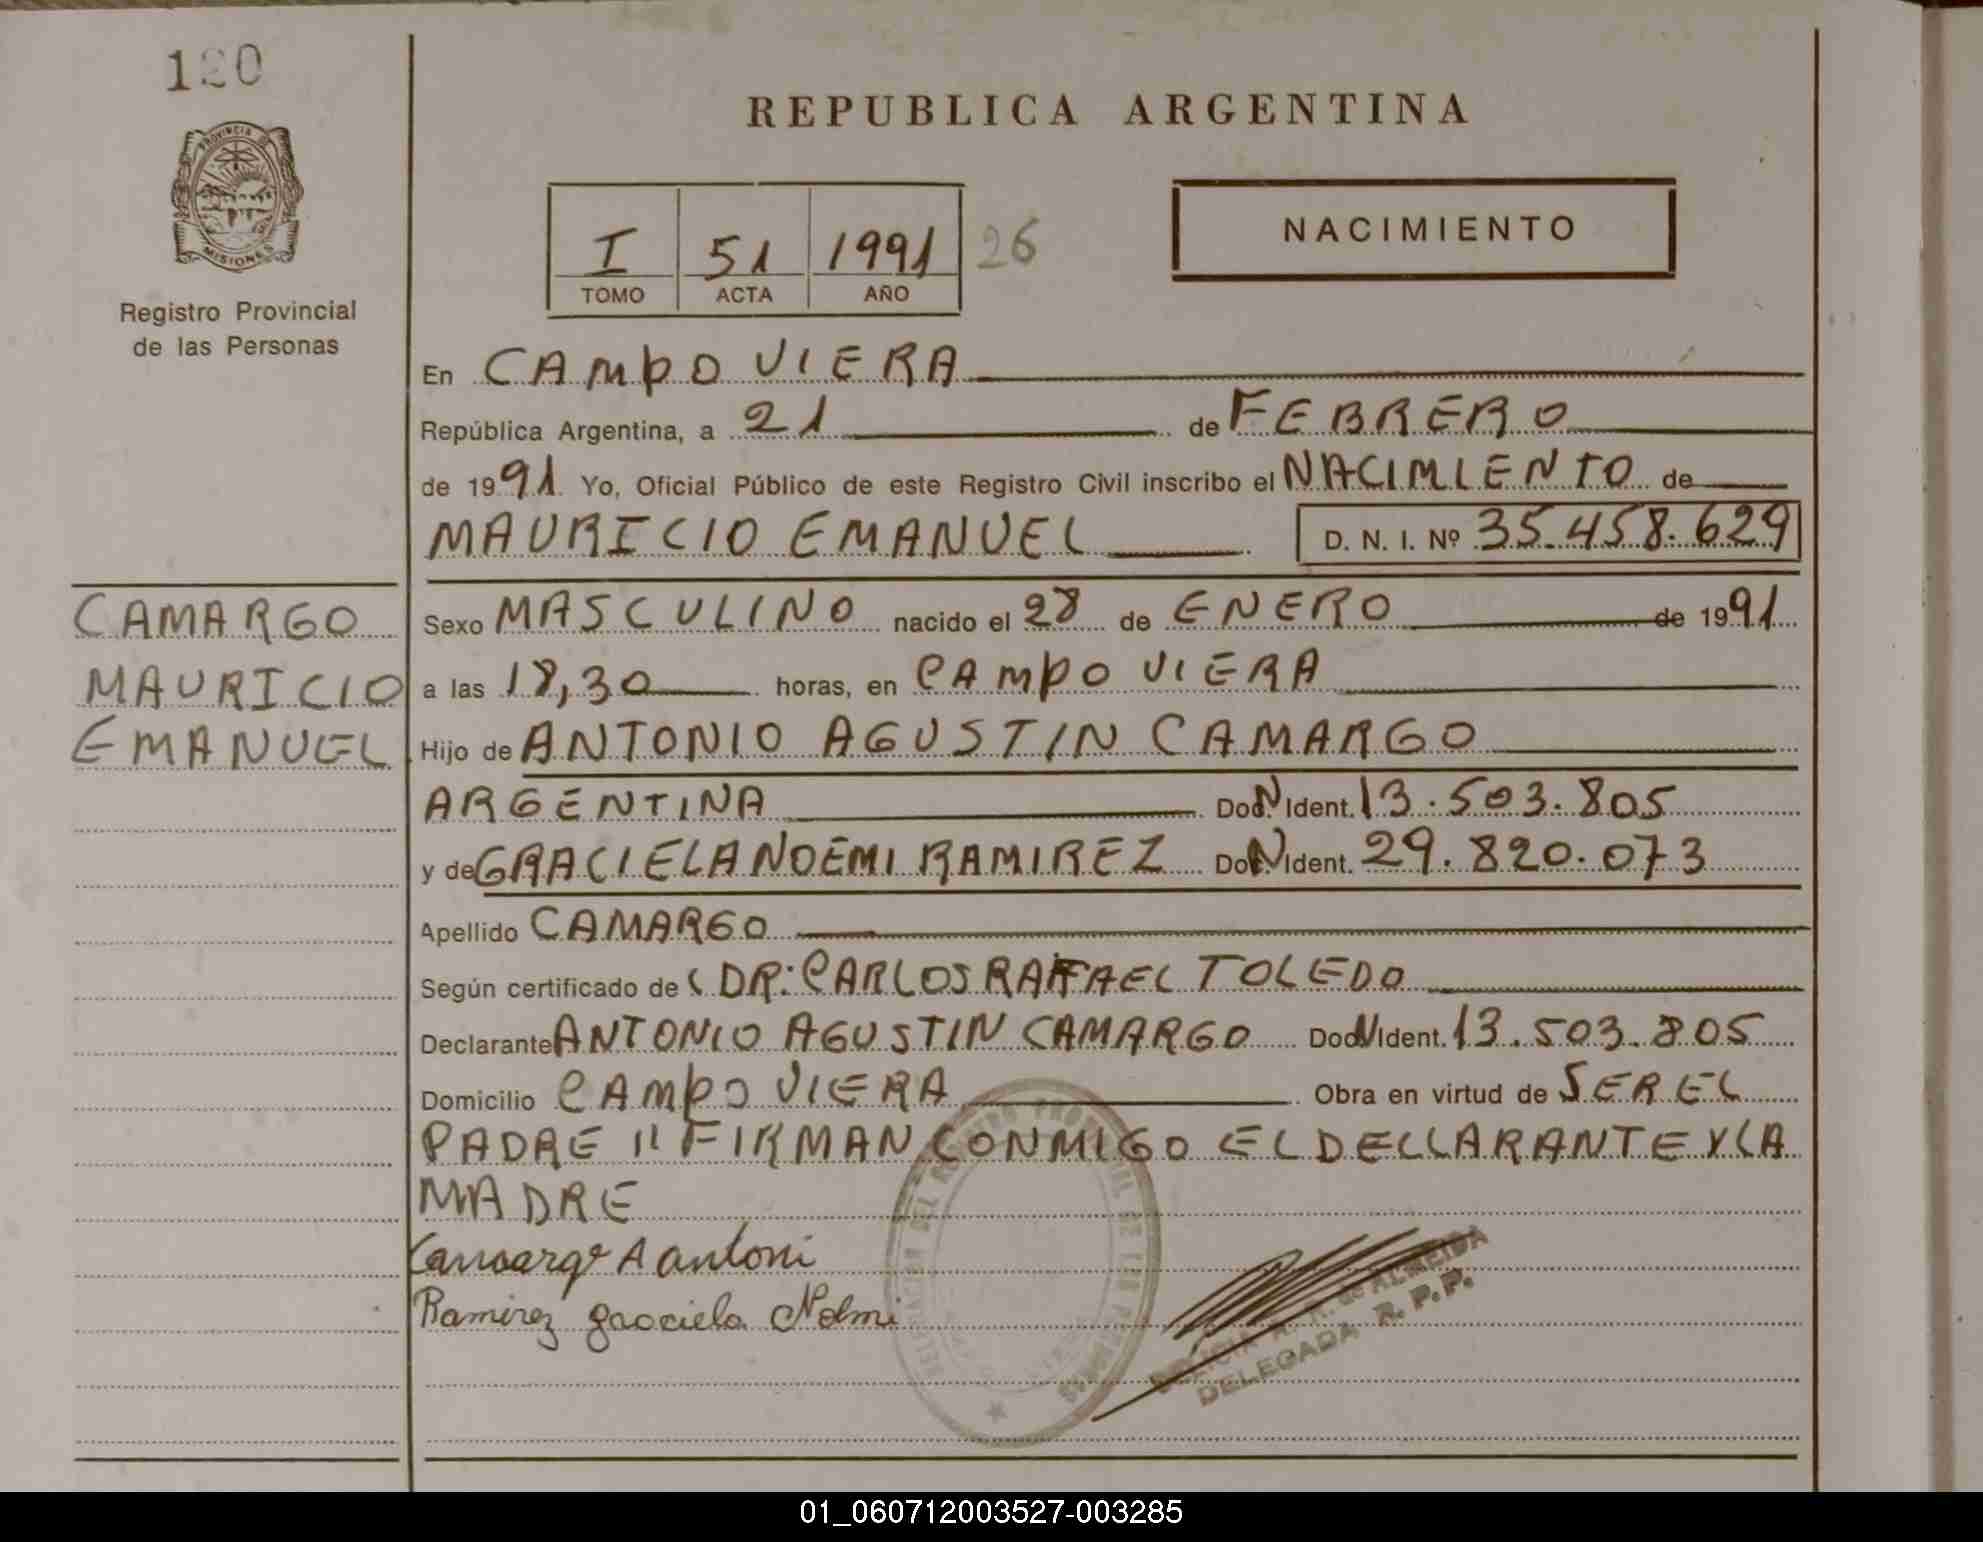 120
PROVINCIA DE
MISIONES
Registro Provincial
de las Personas
REPUBLICA ARGENTINA
I 51 1991 26
TOMO ACTA AÑO
NACIMIENTO
En CAMPO VIERA
República Argentina, a 21 de FEBRERO
de 1991 Yo, Oficial Público de este Registro Civil inscribo el NACIMIENTO de
MAURICIO EMANUEL D. N. I. Nº 35.458.629
CAMARGO
MAURICIO
EMANUEL
Sexo MASCULINO nacido el 28 de ENERO de 1991
a las 18,30 horas, en CAMPO VIERA
Hijo de ANTONIO AGUSTIN CAMARGO
ARGENTINA Doc. N Ident. 13.503.805
y de GRACIELA NOEMI RAMIREZ Doc. N Ident. 29.820.073
Apellido CAMARGO
Según certificado de DR: CARLOS RAFAEL TOLEDO
Declarante ANTONIO AGUSTIN CAMARGO Doc. N Ident. 13.503.805
Domicilio CAMPO VIERA Obra en virtud de SER EL
PADRE 11 FIRMAN CONMIGO EL DECLARANTE Y LA
MADRE
Camargo A antoni
Ramirez graciela Nolmi
R. de ALMEIDA
DELEGADA R. P. P.
01_060712003527-003285